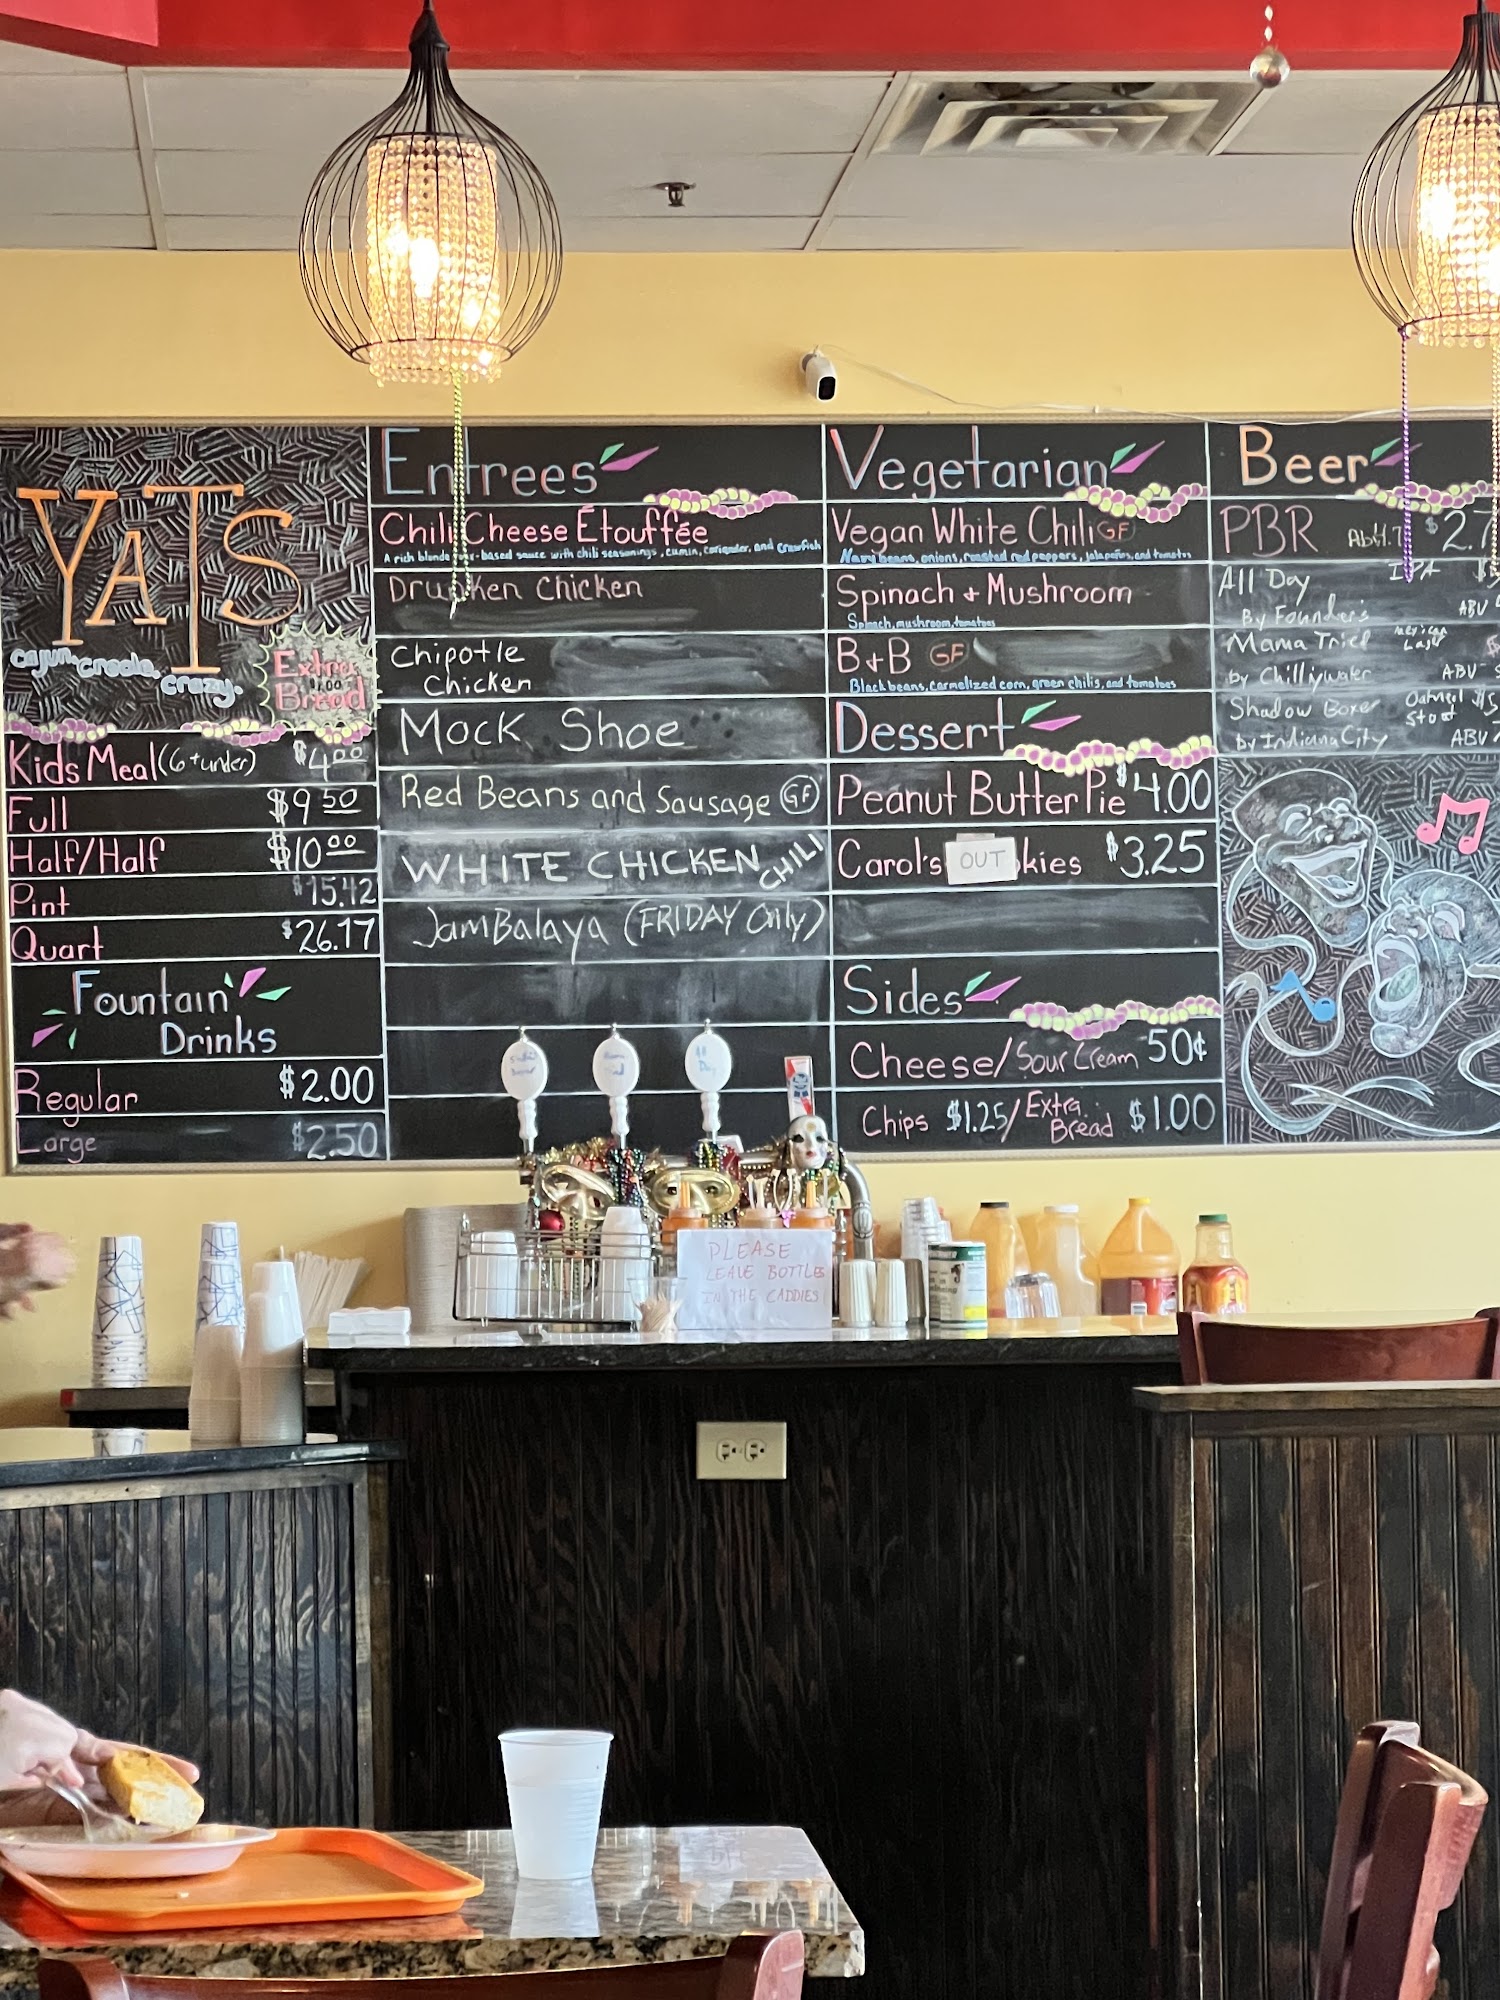 YATS
cajun. creole. crazy.
Extra
$1.00
Bread
Kids Meal (6 + under) $4.00
Full $9.50
Half/Half $10.00
Pint $15.42
Quart $26.17
Fountain
Drinks
Regular $2.00
Large $2.50
Entrees
Chili Cheese Étouffée
A rich blonde -based sauce with chili seasonings, cumin, coriander, and crawfish
Drunken Chicken
Chipotle
Chicken
Mock Shoe
Red Beans and Sausage GF
WHITE CHICKEN CHILI
JamBalaya (FRIDAY Only)
Vegetarian
Vegan White Chili GF
Navy beans, onions, roasted red peppers, jalapeños, and tomatos
Spinach + Mushroom
Spinach, mushroom, tomatoes
B+B GF
Black beans, carmelized corn, green chilis, and tomatoes
Dessert
Peanut Butter Pie $4.00
Carol's OUT kies $3.25
Sides
Cheese/Sour Cream 50¢
Chips $1.25/Extra Bread $1.00
Beer
PBR $2.7
All Day IPA
By Founder's ABV
Mama Tried Mexican Lager
by Chilliywater ABV
Shadow Boxer Oatmeal Stout $5
by Indiana City ABV
All
Day
PLEASE
LEAVE BOTTLES
IN THE CADDIES